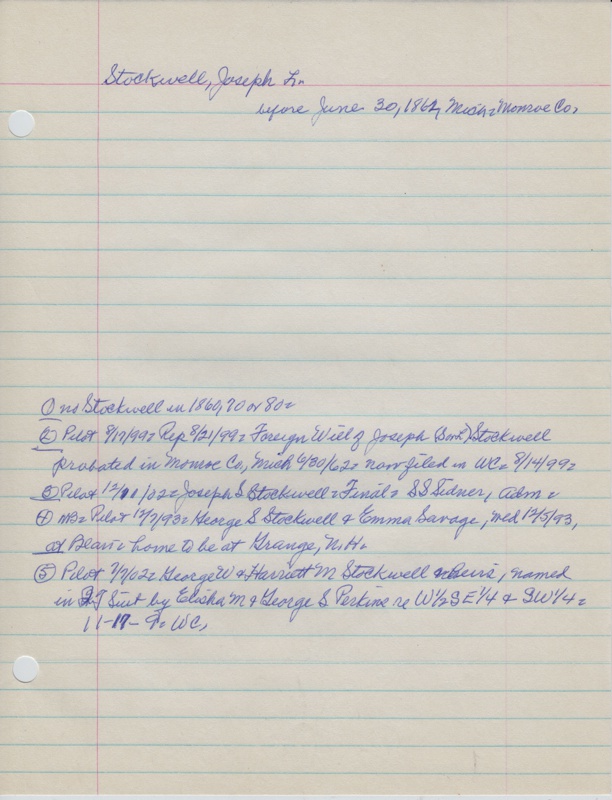 Stockwell, Joseph
before June 30, 1862, Mich = Monroe Co,
① no Stockwell in 1860, 70 or 80 =
② Pilot 8/17/99 = Rep 8/21/99 = Foreign Will of Joseph Stockwell
probated in Monroe Co, Mich 6/30/62 = now filed in WC = 8/14/99 =
③ Pilot /02 = Joseph S Stockwell = Final = S S Tidner, adm =
④ MB = Pilot 12/7/93 = George S Stockwell & Emma Savage, wed 12/5/93,
at Bear = home to be at Grange, N.H. =
⑤ Pilot 7/7/02 = George W & Harriett M Stockwell heirs, named
in Suit by Elisha M & George S Perkins re W 1/2 SE 1/4 & SW 1/4 =
11-17-9 = WC,